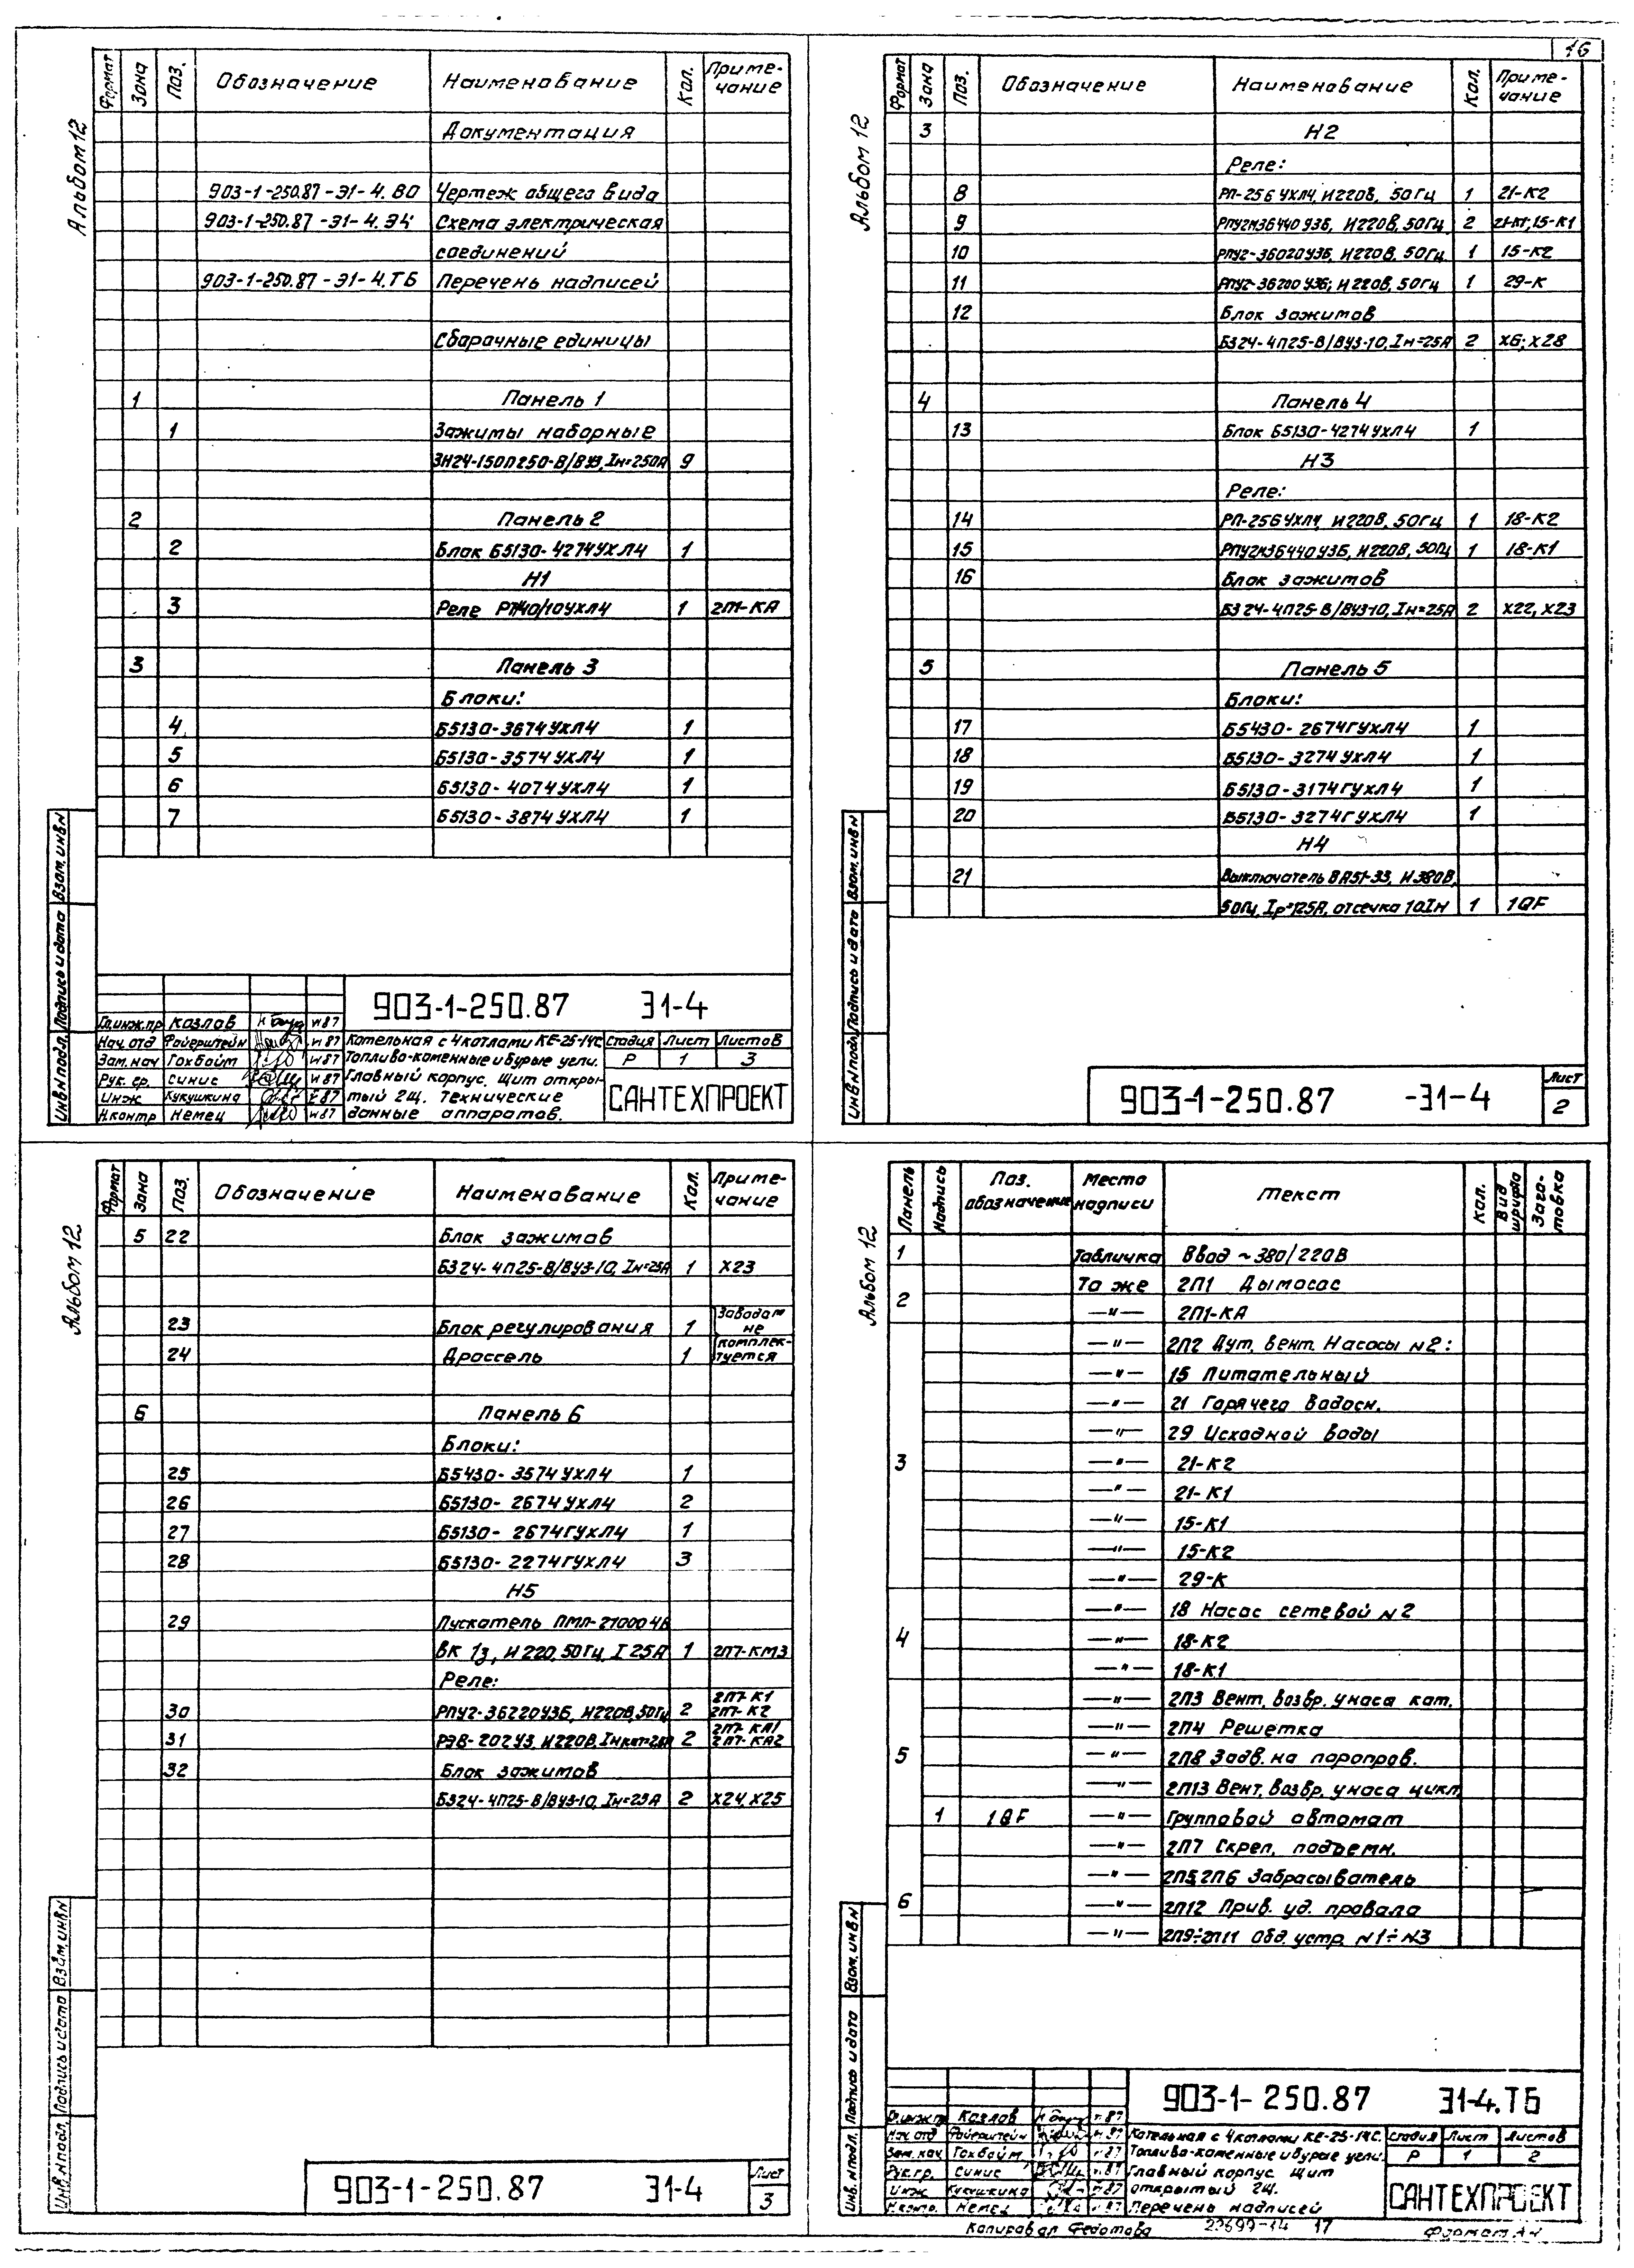 16
Альбом 12
Формат Зона Поз. Обозначение Наименование Кол. Приме-
чание
Документация
903-1-250.87-Э1-4.ВО Чертеж общего вида
903-1-250.87-Э1-4.Э4 Схема электрическая
соединений
903-1-250.87-Э1-4.ТБ Перечень надписей
Сборочные единицы
1 Панель 1
1 Зажимы наборные
ЗН24-150П250-В/ВУ3, Iн=250А 9
2 Панель 2
2 Блок Б5130-4274УХЛ4 1
Н1
3 Реле РТ40/10УХЛ4 1 2П1-КА
3 Панель 3
Блоки:
4 Б5130-3674УХЛ4 1
5 Б5130-3574УХЛ4 1
6 Б5130-4074УХЛ4 1
7 Б5130-3874УХЛ4 1
Инв.N подл. Подпись и дата Взам.инв N
903-1-250.87 Э1-4
Гл.инж.пр Козлов
Нач.отд Файерштейн
Зам.нач Гохбойм
Рук. гр. Синис
Инж Кукушкина
Н.контр Немец
Котельная с 4 котлами КЕ-25-14С
Топливо-каменные и бурые угли.
Главный корпус. Щит откры-
тый 2Щ. Технические
данные аппаратов.
Стадия Лист Листов
Р 1 3
САНТЕХПРОЕКТ
Альбом 12
Формат Зона Поз. Обозначение Наименование Кол. Приме-
чание
3 Н2
Реле:
8 РП-256 УХЛ4, И220В, 50Гц 1 21-К2
9 РПУ2М36440У3Б, И220В, 50Гц 2 21-К1, 15-К1
10 РПУ2-36020У3Б, И220В, 50Гц 1 15-К2
11 РПУ2-36200У3Б; И220В, 50Гц 1 29-К
12 Блок зажимов
Б324-4П25-В/ВУ3-10, Iн=25А 2 Х6; Х28
4 Панель 4
13 Блок Б5130-4274УХЛ4 1
Н3
Реле:
14 РП-256УХЛ4, И220В, 50Гц 1 18-К2
15 РПУ2М36440У3Б, И220В, 50Гц 1 18-К1
16 Блок зажимов
Б324-4П25-В/ВУ3-10, Iн=25А 2 Х22, Х23
5 Панель 5
Блоки:
17 Б5430-2674ГУХЛ4 1
18 Б5130-3274УХЛ4 1
19 Б5130-3174ГУХЛ4 1
20 Б5130-3274ГУХЛ4 1
Н4
21 Выключатель ВА51-33, И380В,
50Гц, Iр=125А, отсечка 10Iн 1 1QF
Инв.N подл. Подпись и дата Взам.инв N
903-1-250.87 -Э1-4
Лист
2
Альбом 12
Формат Зона Поз. Обозначение Наименование Кол. Приме-
чание
5 22 Блок зажимов
Б324-4П25-В/ВУ3-10, Iн=25А 1 Х23
23 Блок регулирования 1
24 Дроссель 1
Заводом
не
комплек-
туется
6 Панель 6
Блоки:
25 Б5430-3574УХЛ4 1
26 Б5130-2674УХЛ4 2
27 Б5130-2674ГУХЛ4 1
28 Б5130-2274ГУХЛ4 3
Н5
29 Пускатель ПМЛ-210004В
ВК 1з, И220, 50Гц, I 25А 1 2П7-КМ3
Реле:
30 РПУ2-36220У3Б, И220В, 50Гц 2 2П7-К1
2П7-К2
31 РЭВ-202У3, И220В, 2 2П7-КА1
2П7-КА2
32 Блок зажимов
Б324-4П25-В/ВУ3-10, Iн=25А 2 Х24, Х25
Инв.N подл. Подпись и дата Взам.инв N
903-1-250.87 Э1-4
Лист
3
Альбом 12
Панель Надпись Поз.
обозначение Место
надписи Текст Кол. Вид
шрифта Заго-
товка
1 Табличка Ввод ~380/220В
2 То же 2П1 Дымосос
—"— 2П1-КА
—"— 2П2 Дут. вент. Насосы N2:
—"— 15 Питательный
—"— 21 Горячего водосн.
—"— 29 Исходной воды
3 —"— 21-К2
—"— 21-К1
—"— 15-К1
—"— 15-К2
—"— 29-К
—"— 18 Насос сетевой N2
4 —"— 18-К2
—"— 18-К1
—"— 2П3 Вент. возвр. уноса кот.
—"— 2П4 Решетка
5 —"— 2П8 Задв. на паропров.
—"— 2П13 Вент. возвр. уноса цикл.
1 1QF —"— Групповой автомат
—"— 2П7 Скреп. подъемн.
—"— 2П5, 2П6 Забрасыватель
6 —"— 2П12 Прив. уд. провала
—"— 2П9÷2П11 Обд. устр. N1÷N3
Инв. N подл. Подпись и дата Взам. инв N
903-1-250.87 Э1-4.ТБ
Гл.инж.пр Козлов
Нач.отд Файерштейн
Зам.нач Гохбойм
Рук.гр. Синис
Инж Кукушкина
Н.контр. Немец
Котельная с 4 котлами КЕ-25-14С.
Топливо-каменные и бурые угли.
Главный корпус. Щит
открытый 2Щ.
Перечень надписей
Стадия Лист Листов
Р 1 2
САНТЕХПРОЕКТ
Копировал Федотова 22699-14 17 Формат А4